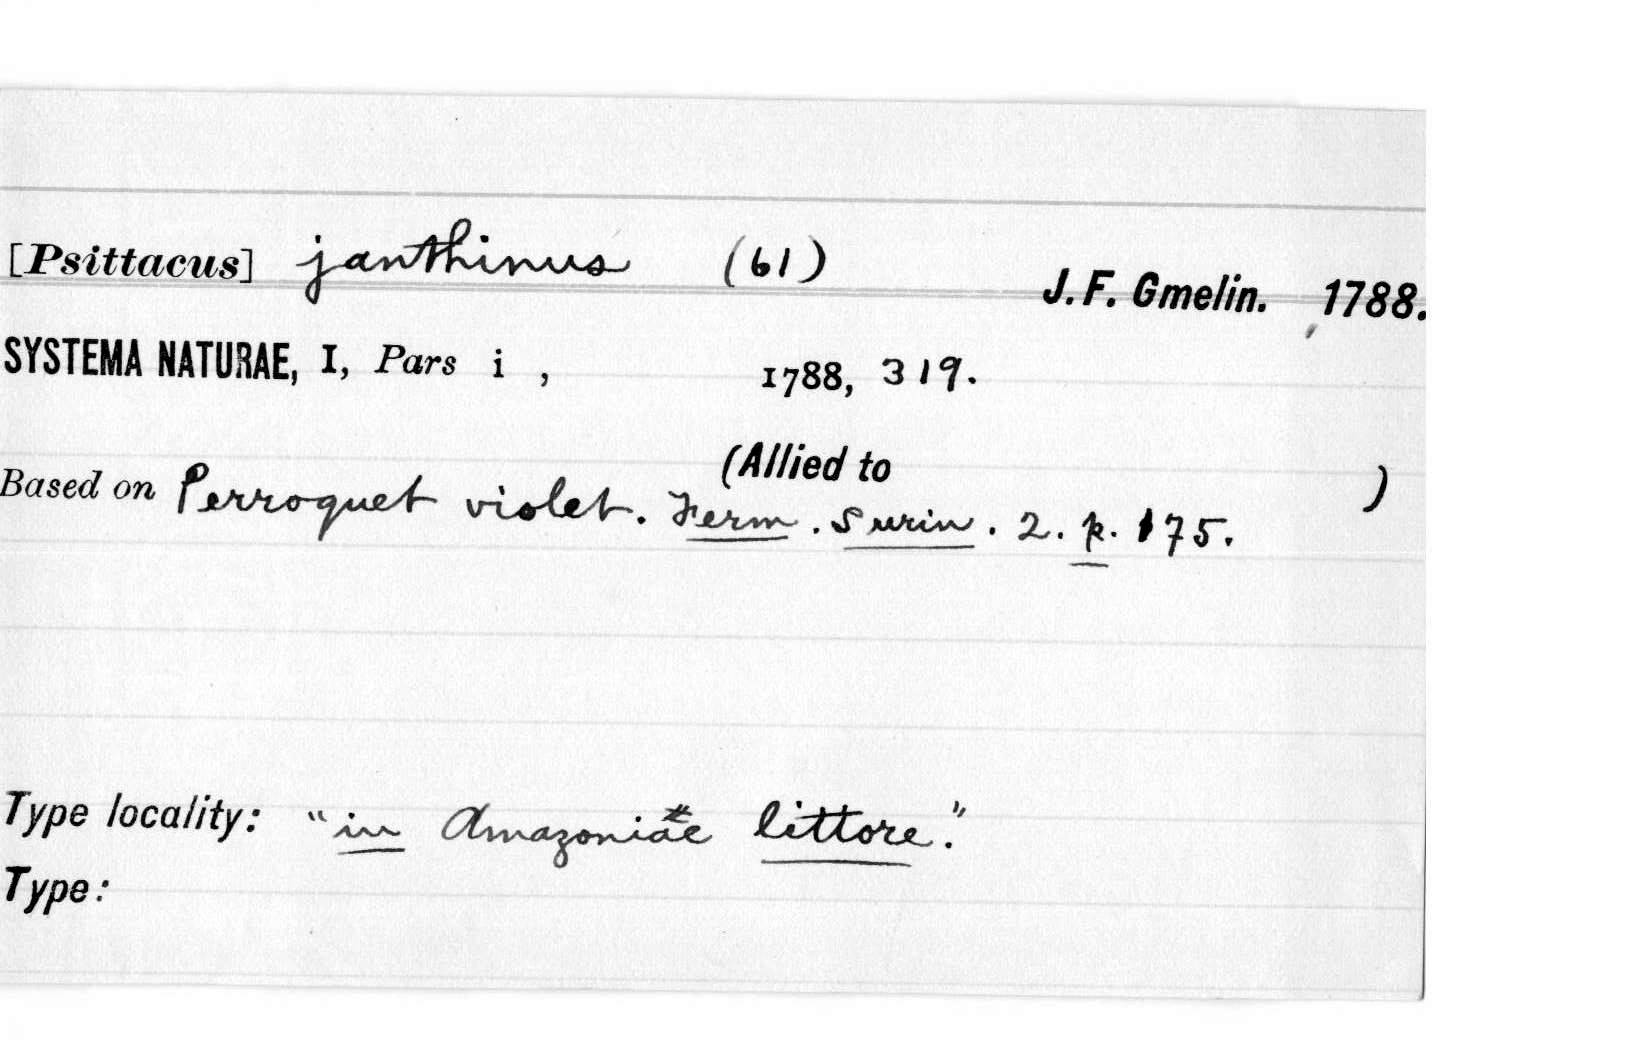 [Psittacus] janthinus (61) J. F. Gmelin. 1788.
SYSTEMA NATURAE, I, Pars i, 1788, 319.
(Allied to )
Based on Perroquet violet. Ferm. Surin. 2. p. 175.
Type locality: "in Amazoniae littore."
Type: